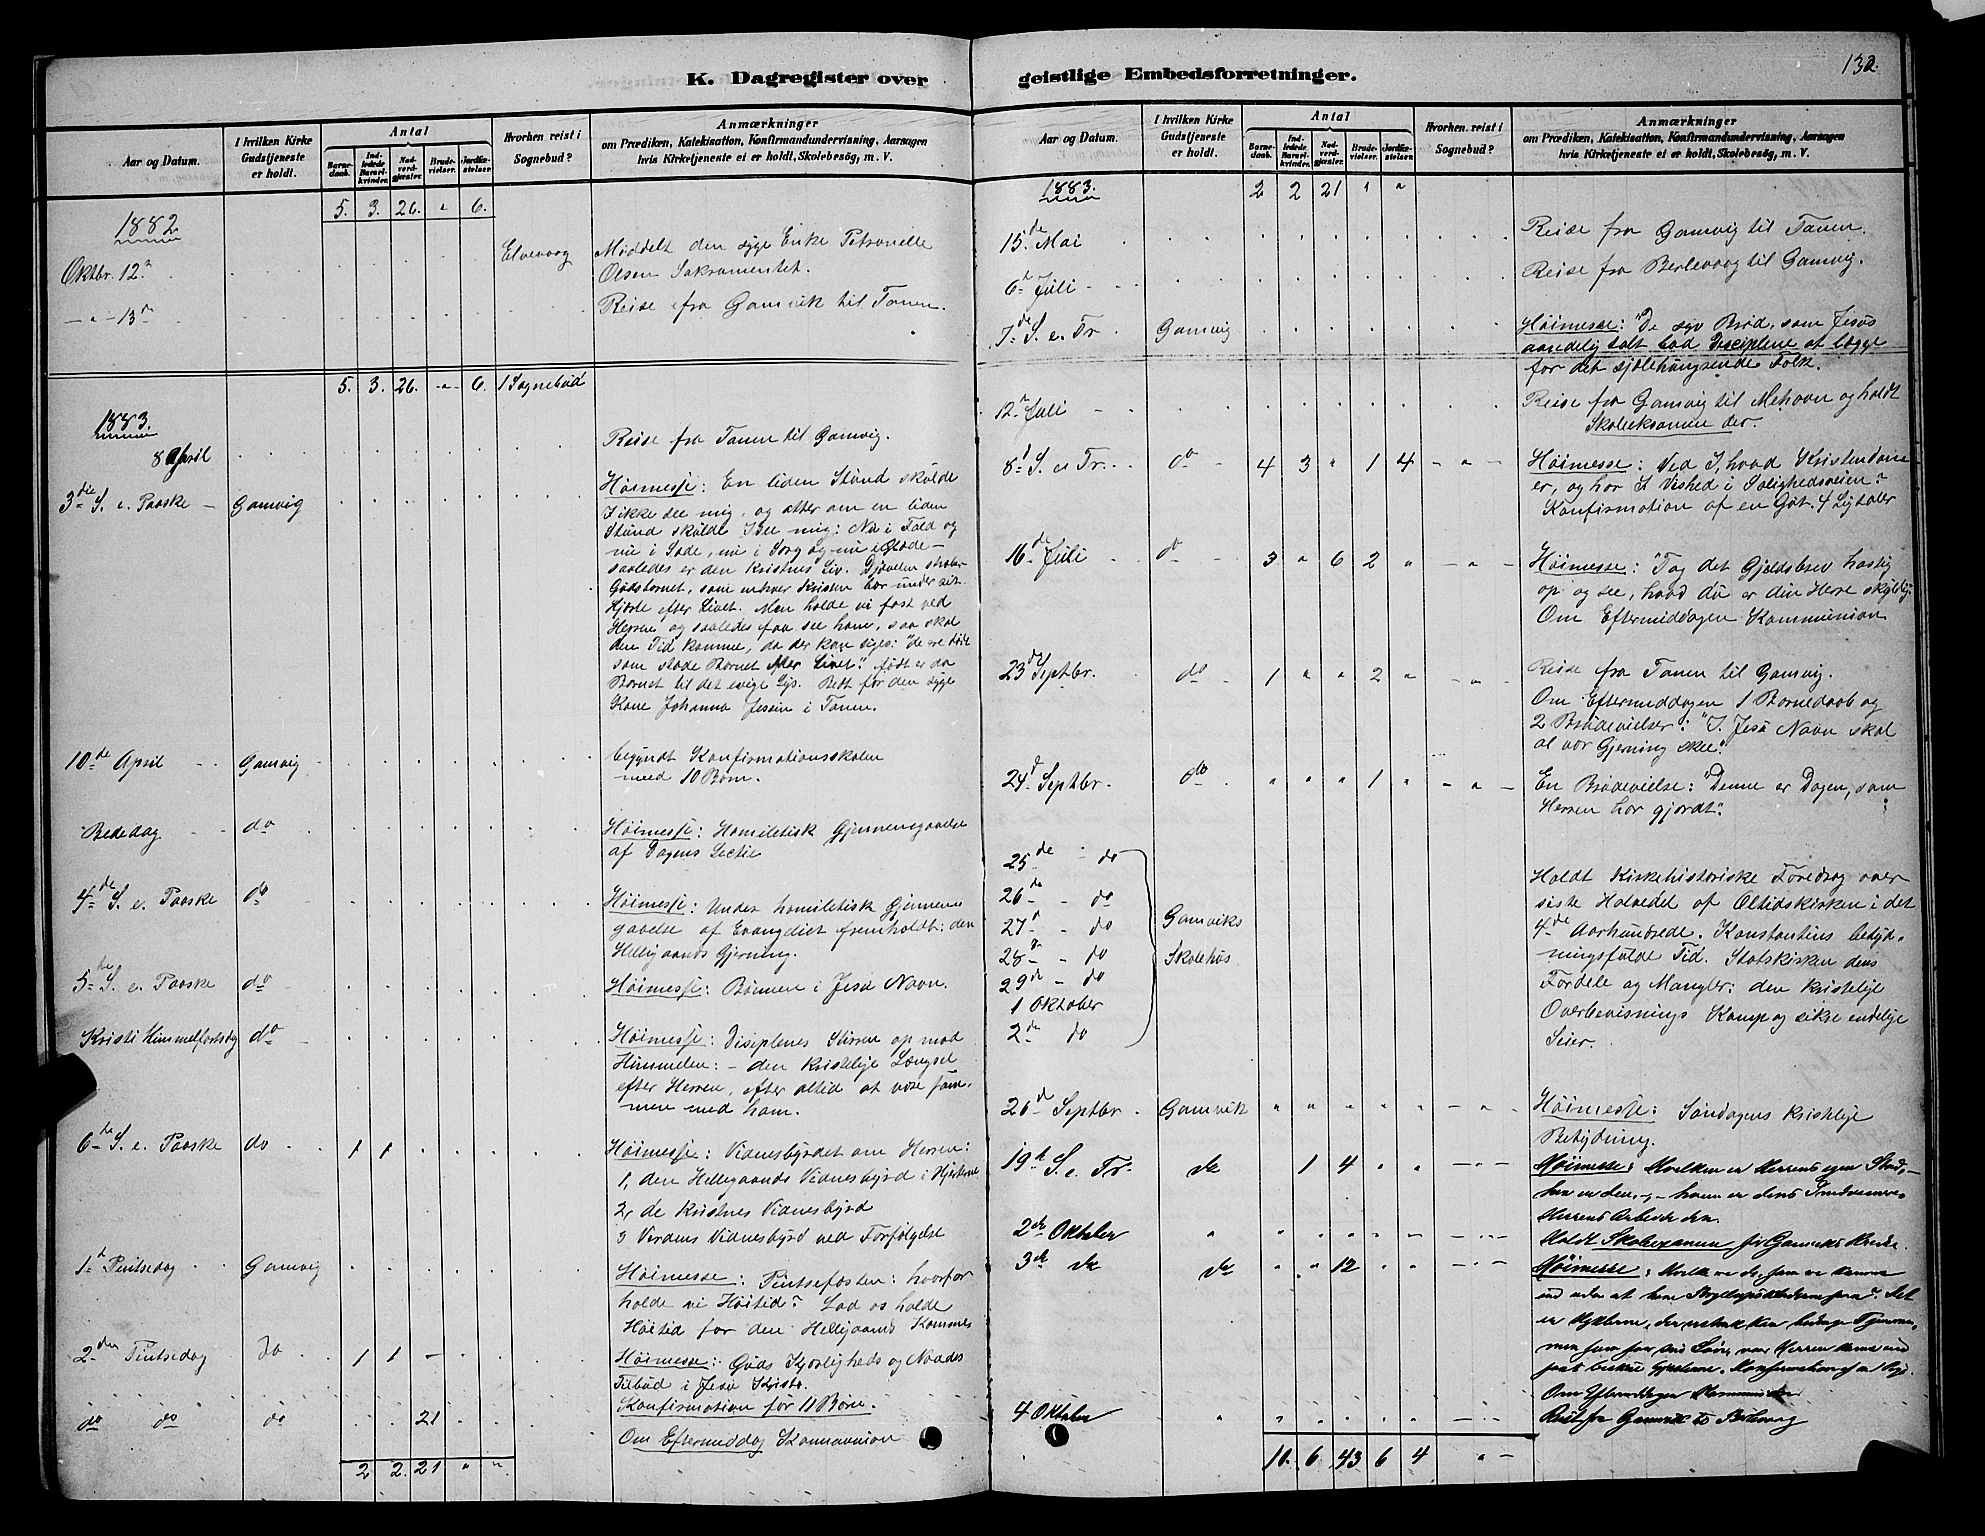 K. Dagregister over
Aar og Datum.
I hvilken Kirke Gudstjeneste er holdt.
Antal
Barnedaab.
Indledede Barselkvinder.
Nadverdgjæster.
Brudevielser.
Jordfæstelser.
Hvorhen reist i Sognebud?
Anmærkninger
om Prædiken, Katekisation, Konfirmandundervisning, Aarsagen
hvis Kirketjeneste ei er holdt, Skolebesøg, m. V.
5. 3. 26. " 6.
1882
Oktbr. 12te Elvevaag Meddelt den syge Enke Petronelle
Olsen Sakramentet.
— " — 13de Reise fra Gamvik til Tanen.
5. 3. 26. " 6. 1 Sognebud
1883.
8 April Reise fra Tanen til Gamvig.
3die S. e. Paaske Gamvig Høimesse: En liden Stund skulde
I ikke see mig, og atter om en liden
Stund skulde I see mig: Nu i Fald og
nu i Sæde, nu i Sorg og nu i Glæde —
saaledes er den Kristnes Liv. Djævelen straber
Gudsbarnet, som enhver Kristen bær under sit
Hjerte efter Livet. Men holde vi fast ved
Herren og saaledes faa see ham, saa skal
den Tid komme, da der kan siges: "de ere døde
som stode Barnet efter Livet." født er da
Barnet til det evige Lys. Bett for den syge
Kone Johanna Jessen i Tanen.
10de April Gamvig begyndt Konfirmationsskolen
med 10 Børn.
Bededag do Høimesse: Homiletisk Gjennemgaaelse
af Dagens Lectie
4de S. e. Paaske do Høimesse: Under homiletisk Gjennem
gaaelse af Evangeliet fremholdt: den
Helligaands Gjerning.
5te S. e. Paaske do Høimesse: Bønnen i Jesu Navn.
Kristi Himmelfartsdag do Høimesse: Disiplenes Stirren op mod
Himmelen: — den kristelige Længsel
efter Herren, efter altid at være sam-
men med ham.
6te S. e. Paaske do 1 1 Høimesse: Vidnesbyrdet om Herren:
1, den Helligaands Vidnesbyrd i Hjerterne
2, de Kristnes Vidnesbyrd
3 Verdens Vidnesbyrd ved Forfølgelse
1ste Pintsedag Gamvig Høimesse: Pintsefesten: hvorfor
holde vi Høitid? Lad os holde
Høitid for den Helligaands Kommes
2den Pintsedag do 1 1 — Høimesse: Guds Kjærligheds og Naades
Tilbud i Jesu Kristo.
Konfirmation for 11 Børn.
do do do 21 Om Eftermiddag Kommunion
2 2. 21 " "
geistlige Embedsforretninger.
132.
Aar og Datum.
I hvilken Kirke Gudstjeneste er holdt.
Antal
Barnedaab.
Indledede Barselkvinder.
Nadverdgjæster.
Brudevielser.
Jordfæstelser.
Hvorhen reist i Sognebud?
Anmærkninger
om Prædiken, Katekisation, Konfirmandundervisning, Aarsagen
hvis Kirketjeneste ei er holdt, Skolebesøg, m. V.
1883. 2 2 21 " "
15de Mai Reise fra Gamvig til Tanen.
6te Juli Reise fra Berlevaag til Gamvig.
7de S. e. Tr Gamvig Høimesse: "De syv Brød, som Jesus
aandelig talt bad Disciplene at lægge
for det sjælehungrende Folk.
12te Juli Reise fra Gamvig til Mehavn og holdt
Skoleeksamen der.
8de S. e. Tr. do 4 3 " 1 4 — " — Høimesse: Ved I, hvad Kristendom
er, og har I Vished i Salighedsveien?
Konfirmation af en Gut. 4 Ligtaler
16de Juli do 3 " 6 2 " — " — Høimesse: "Tag det Gjeldsbrev hastig
op og see, hvad du er din Herre skyldig.
Om Eftermiddagen Kommunion
23de Septbr. do 1 " " 2 " — " — Reise fra Tanen til Gamvig.
Om Eftermiddagen 1 Barnedaab og
2 Brudevielser: "I Jesu Navn skal
al vor Gjerning skee."
24de Septbr. do " " " 1 " — " — En Brudevielse: "Denne er Dagen, som
Herren har gjordt".
25de — do
26de — do
27de — do Gamviks
28de — do Skolehus.
29de — do
1 Oktober
2de do
Holdt Kirkehistoriske Foredrag over
siste Halvedel af Oltidskirken i det
4de Aarhundrede. Konstantins betyd-
ningsfulde Tid. Statskirken dens
Fordele og Mangler: den kristelige
Overbevisnings Kamp og sikre endelige
Seier.
26de Septbr. Gamvik " " " " " — " — Høimesse: Søndagens kristelige
Betydning.
19de S. e. Tr. do 1 4 " " — " — Høimesse: Hvilken er Herrens egen Stad,
Herrens Arbeide den.
2de Oktober Holdt Skoleexamen for Gamviks Kreds.
3de do do " " 12 " " — " — Høimesse:
Om Eftermiddagen Kommunion
4 Oktober Reist fra Gamvik til Berlevaag
10. 6 43 6 4 " —